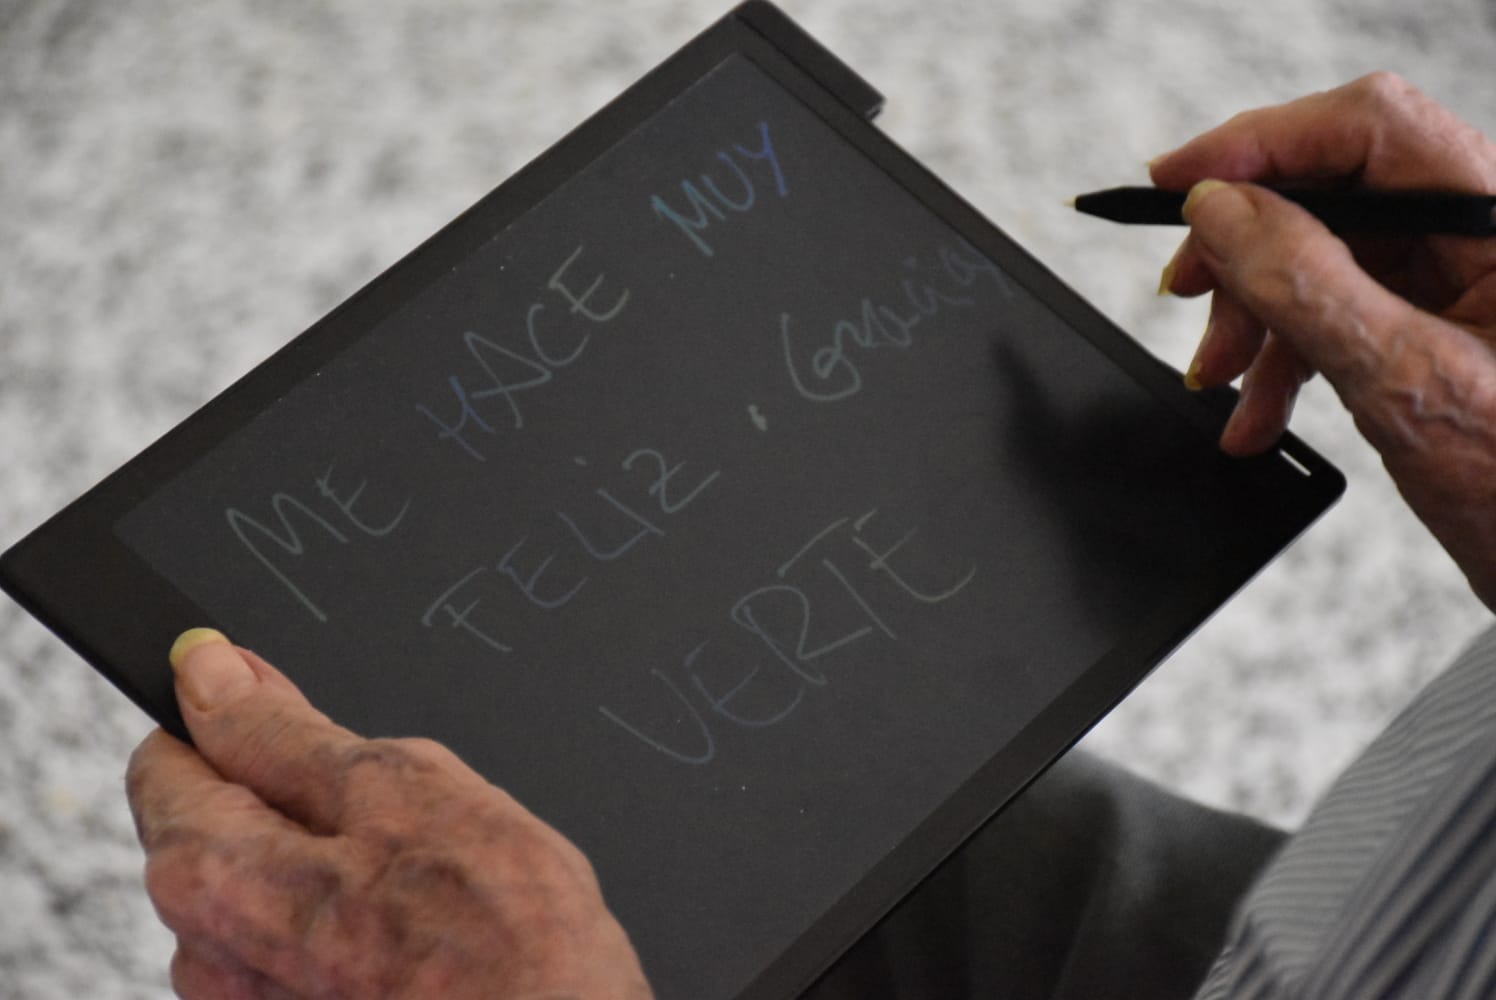 ME HACE MUY
FELIZ . Gracias
VERTE